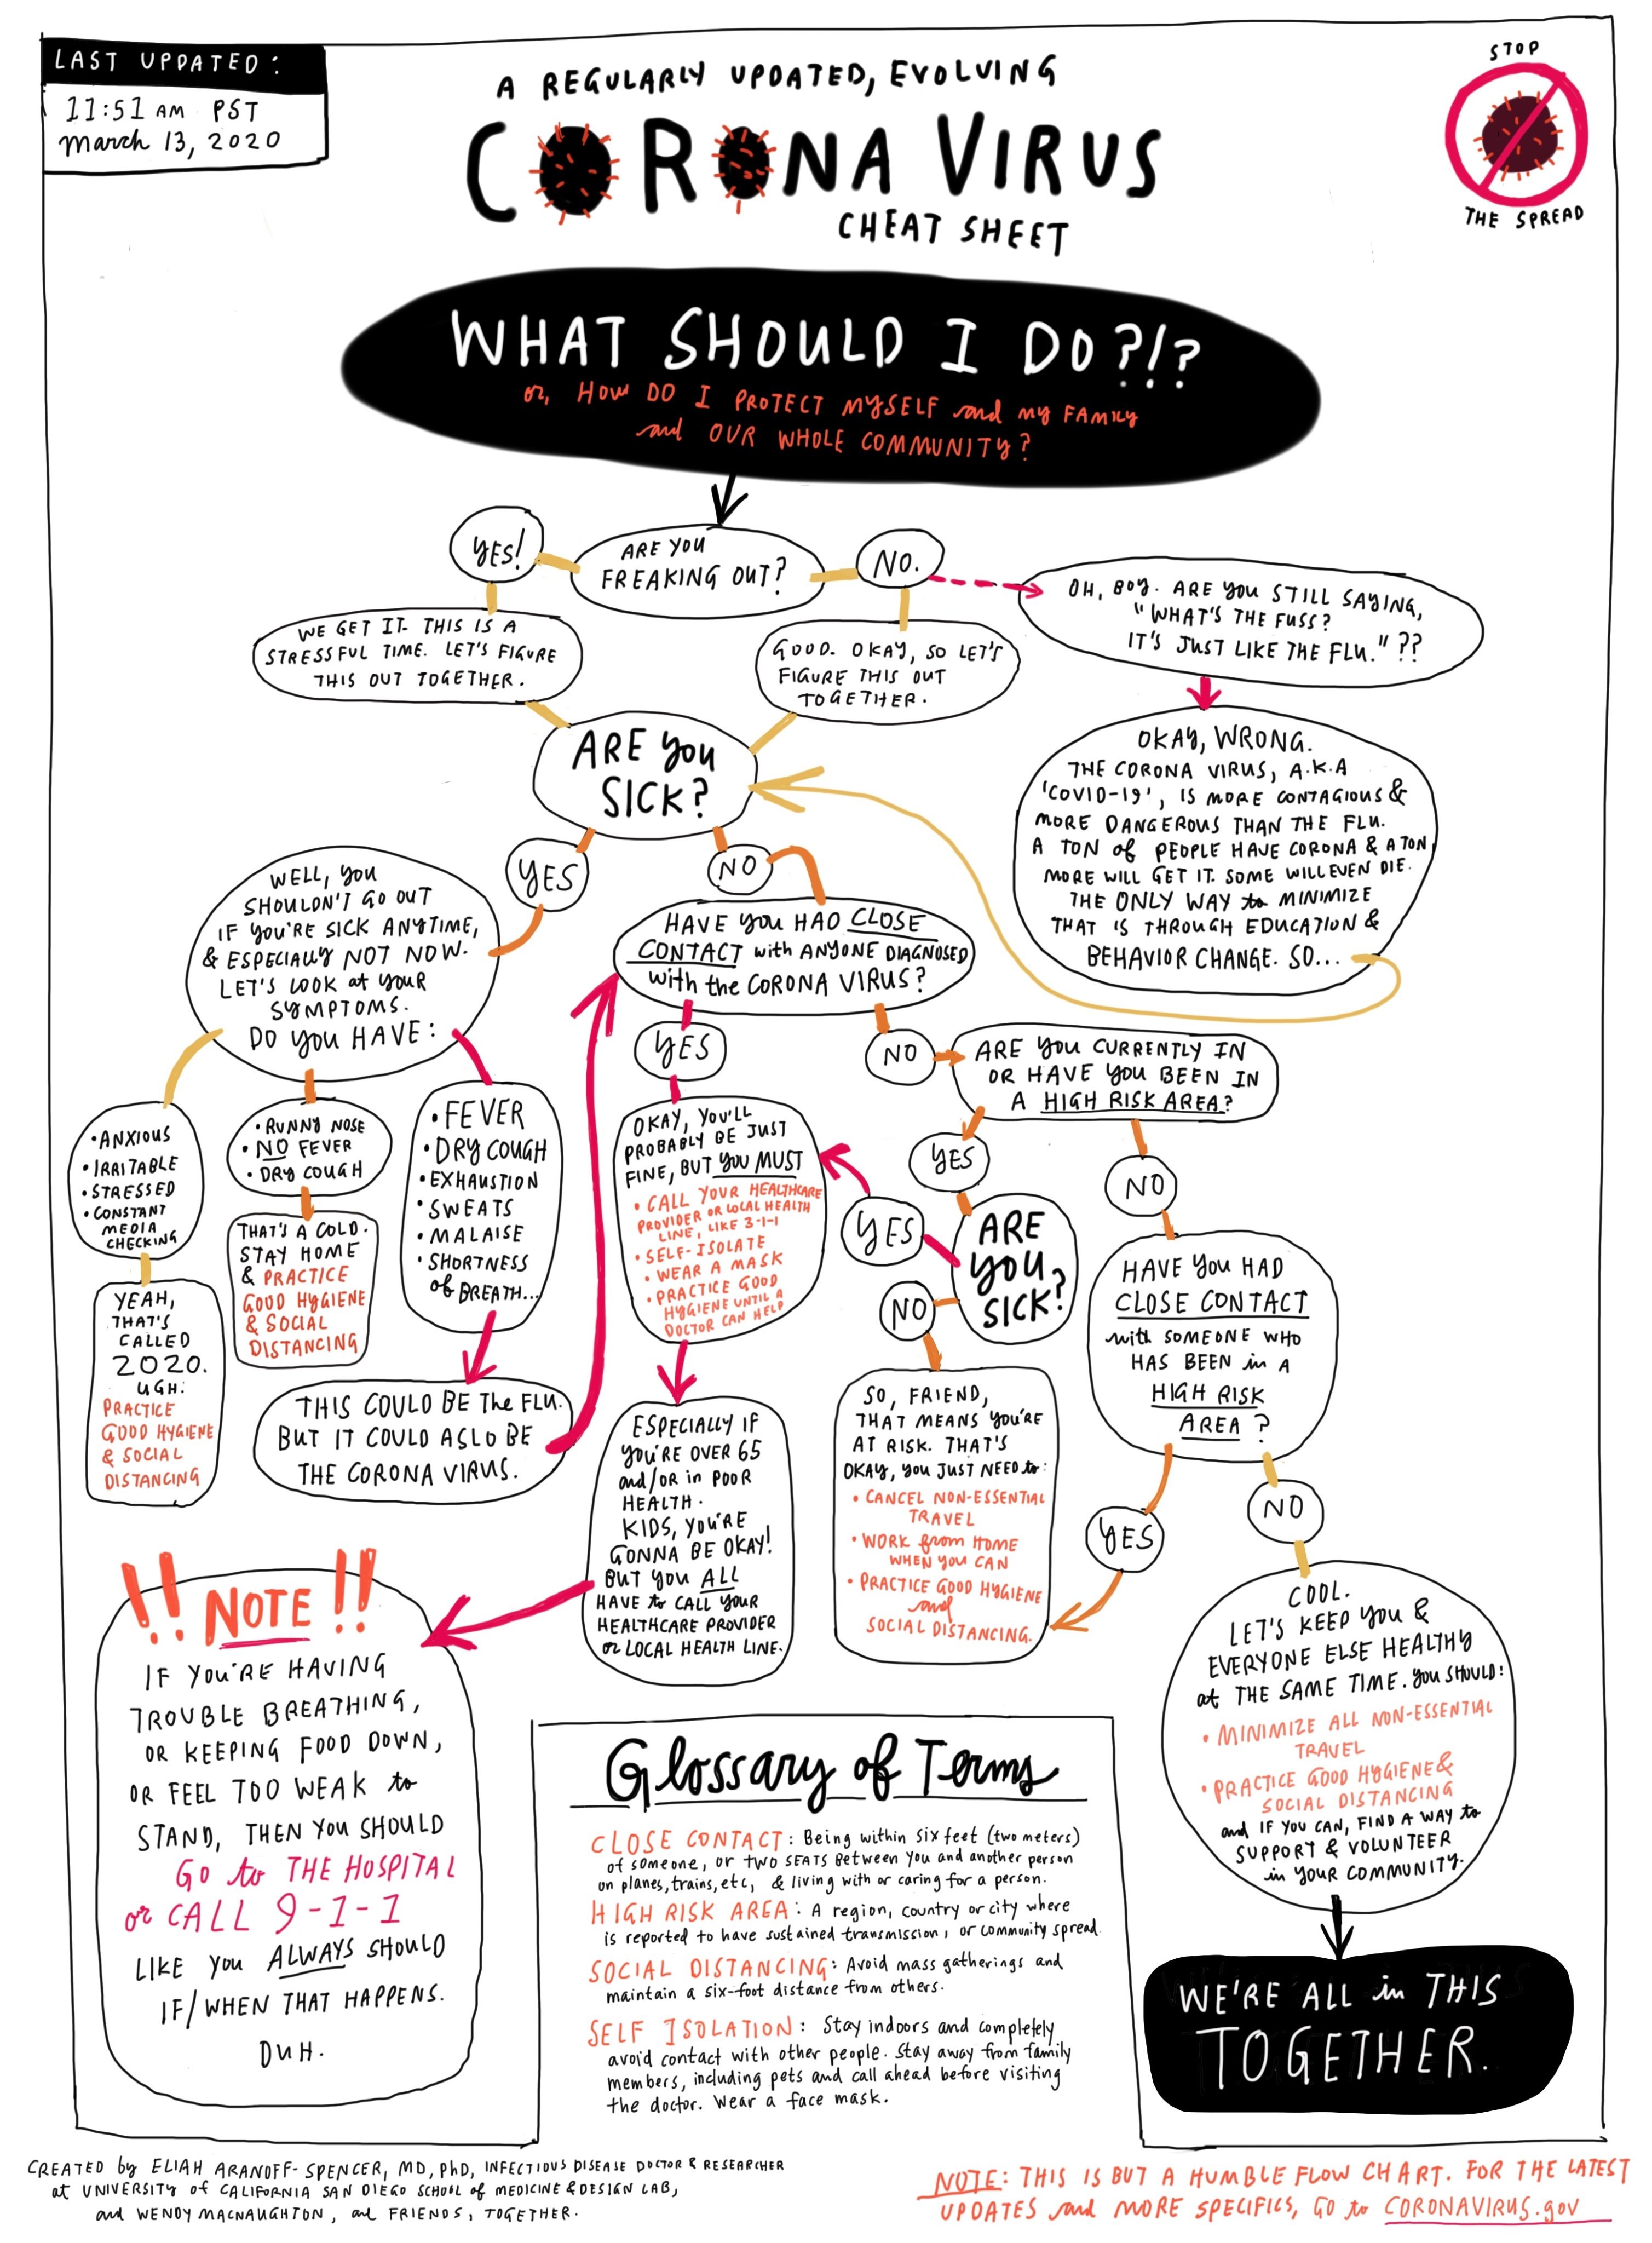 LAST UPDATED:
11:51 AM PST
March 13, 2020
A REGULARLY UPDATED, EVOLVING
CORONA VIRUS
CHEAT SHEET
STOP
THE SPREAD
WHAT SHOULD I DO?!?
or, HOW DO I PROTECT MYSELF and MY FAMILY
and OUR WHOLE COMMUNITY?
ARE YOU
FREAKING OUT?
YES!
NO.
WE GET IT. THIS IS A
STRESSFUL TIME. LET'S FIGURE
THIS OUT TOGETHER.
GOOD. OKAY, SO LET'S
FIGURE THIS OUT
TOGETHER.
OH, BOY. ARE YOU STILL SAYING,
"WHAT'S THE FUSS?
IT'S JUST LIKE THE FLU."??
OKAY, WRONG.
THE CORONA VIRUS, A.K.A
'COVID-19', IS MORE CONTAGIOUS &
MORE DANGEROUS THAN THE FLU.
A TON of PEOPLE HAVE CORONA & A TON
MORE WILL GET IT. SOME WILL EVEN DIE.
THE ONLY WAY to MINIMIZE
THAT IS THROUGH EDUCATION &
BEHAVIOR CHANGE. SO...
ARE YOU
SICK?
YES
NO
WELL, YOU
SHOULDN'T GO OUT
IF YOU'RE SICK ANYTIME,
& ESPECIALLY NOT NOW.
LET'S LOOK at YOUR
SYMPTOMS.
DO YOU HAVE:
• ANXIOUS
• IRRITABLE
• STRESSED
• CONSTANT
MEDIA
CHECKING
YEAH,
THAT'S
CALLED
2020.
UGH:
PRACTICE
GOOD HYGIENE
& SOCIAL
DISTANCING
• RUNNY NOSE
• NO FEVER
• DRY COUGH
THAT'S A COLD.
STAY HOME
& PRACTICE
GOOD HYGIENE
& SOCIAL
DISTANCING
• FEVER
• DRY COUGH
• EXHAUSTION
• SWEATS
• MALAISE
• SHORTNESS
of BREATH...
THIS COULD BE THE FLU.
BUT IT COULD ASLO BE
THE CORONA VIRUS.
HAVE YOU HAD CLOSE
CONTACT with ANYONE DIAGNOSED
with the CORONA VIRUS?
YES
NO
OKAY, YOU'LL
PROBABLY BE JUST
FINE, BUT YOU MUST
• CALL YOUR HEALTHCARE
PROVIDER OR LOCAL HEALTH
LINE, LIKE 3-1-1
• SELF-ISOLATE
• WEAR A MASK
• PRACTICE GOOD
HYGIENE UNTIL A
DOCTOR CAN HELP
ESPECIALLY IF
YOU'RE OVER 65
and/OR in POOR
HEALTH.
KIDS, YOU'RE
GONNA BE OKAY!
BUT YOU ALL
HAVE to CALL YOUR
HEALTHCARE PROVIDER
or LOCAL HEALTH LINE.
ARE YOU CURRENTLY IN
OR HAVE YOU BEEN IN
A HIGH RISK AREA?
YES
NO
ARE
YOU
SICK?
YES
NO
SO, FRIEND,
THAT MEANS YOU'RE
AT RISK. THAT'S
OKAY, YOU JUST NEED to:
• CANCEL NON-ESSENTIAL
TRAVEL
• WORK from HOME
WHEN YOU CAN
• PRACTICE GOOD HYGIENE
and
SOCIAL DISTANCING.
HAVE YOU HAD
CLOSE CONTACT
with SOMEONE WHO
HAS BEEN in A
HIGH RISK
AREA?
YES
NO
COOL.
LET'S KEEP YOU &
EVERYONE ELSE HEALTHY
at THE SAME TIME. YOU SHOULD:
• MINIMIZE ALL NON-ESSENTIAL
TRAVEL
• PRACTICE GOOD HYGIENE &
SOCIAL DISTANCING
and IF YOU CAN, FIND A WAY to
SUPPORT & VOLUNTEER
in YOUR COMMUNITY.
WE'RE ALL in THIS
TOGETHER.
!! NOTE !!
IF YOU'RE HAVING
TROUBLE BREATHING,
OR KEEPING FOOD DOWN,
OR FEEL TOO WEAK to
STAND, THEN YOU SHOULD
GO to THE HOSPITAL
or CALL 9-1-1
LIKE YOU ALWAYS SHOULD
IF/WHEN THAT HAPPENS.
DUH.
Glossary of Terms
CLOSE CONTACT: Being within six feet (two meters)
of someone, or TWO SEATS between you and another person
on planes, trains, etc, & living with or caring for a person.
HIGH RISK AREA: A region, country or city where
is reported to have sustained transmission, or community spread.
SOCIAL DISTANCING: Avoid mass gatherings and
maintain a six-foot distance from others.
SELF ISOLATION: Stay indoors and completely
avoid contact with other people. Stay away from family
members, including pets and call ahead before visiting
the doctor. Wear a face mask.
CREATED by ELIAH ARANOFF-SPENCER, MD, PhD, INFECTIOUS DISEASE DOCTOR & RESEARCHER
at UNIVERSITY of CALIFORNIA SAN DIEGO SCHOOL of MEDICINE & DESIGN LAB,
and WENDY MACNAUGHTON, and FRIENDS, TOGETHER.
NOTE: THIS IS BUT A HUMBLE FLOW CHART. FOR THE LATEST
UPDATES and MORE SPECIFICS, GO to CORONAVIRUS.gov